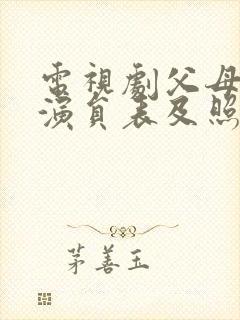 電視劇父母
演員表及照
茅善玉